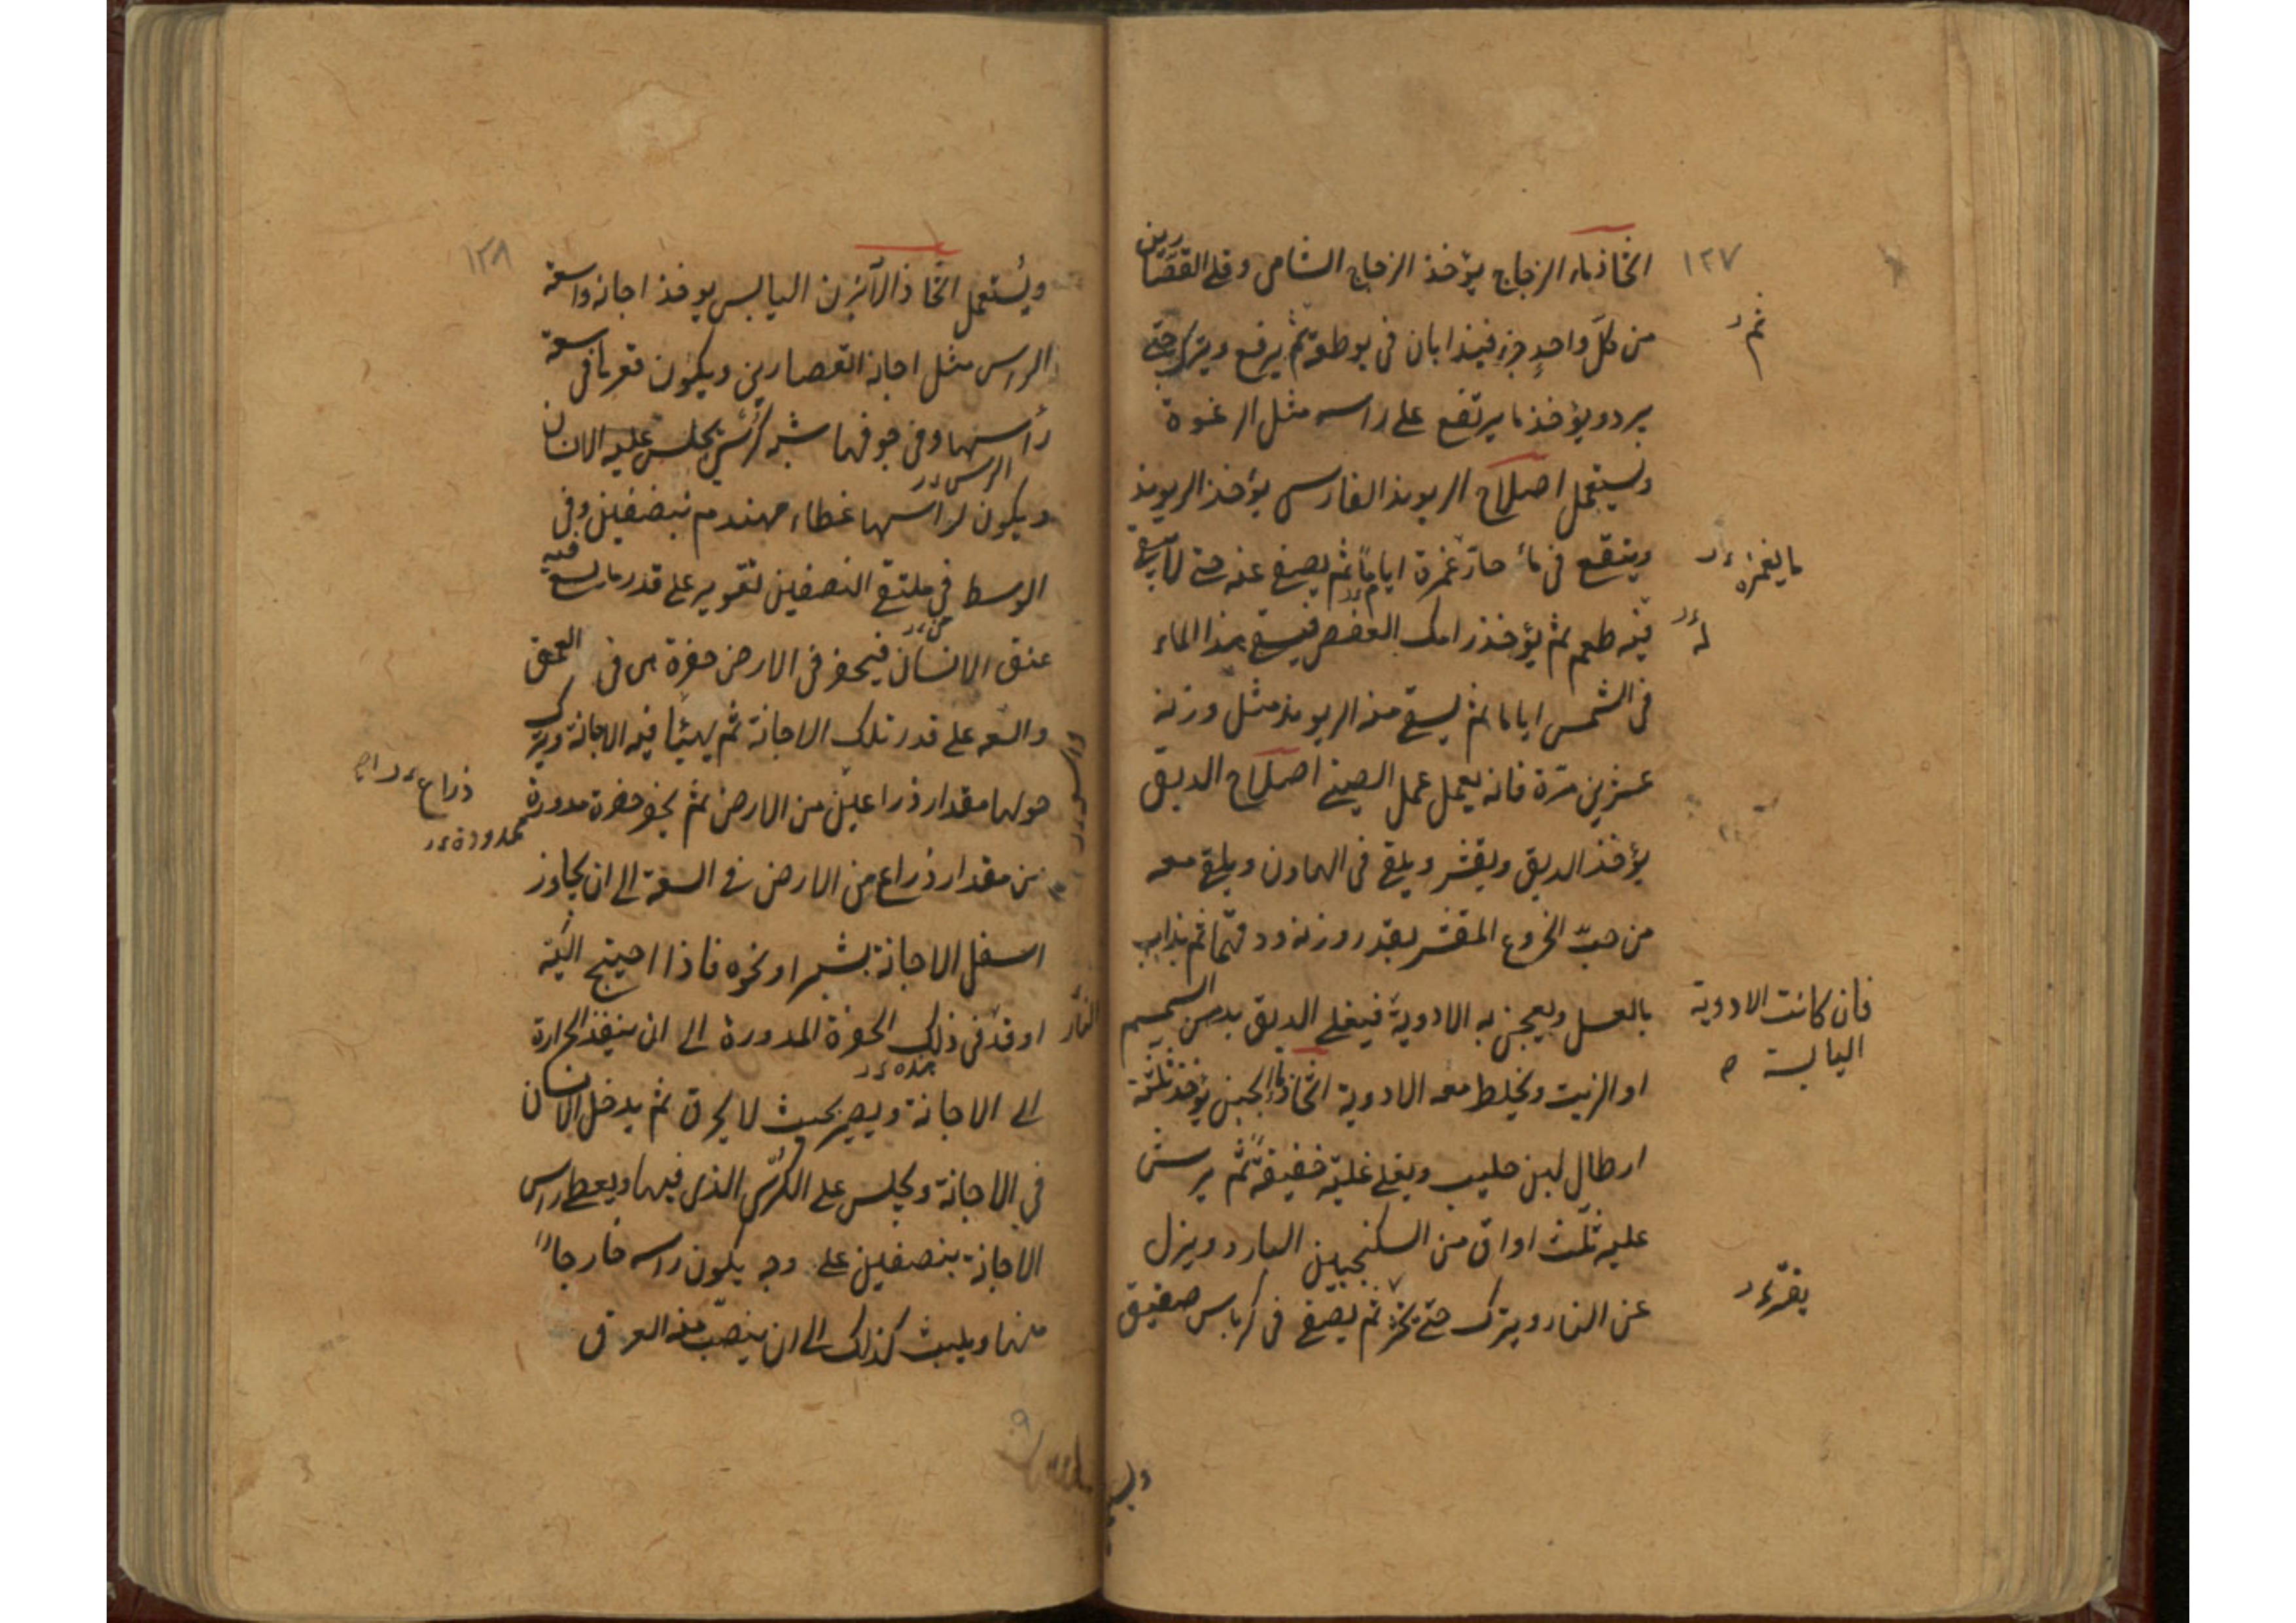 ١٢٧
اتخاذ ماء الزجاج يؤخذ الزجاج الشامى وقلى القصّارين
من كلّ واحدٍ جزء فيذابان فى بوطقة ثم يرفع ويترك حتى
يبرد ويؤخذ ما يرتفع على راسه مثل الرغوة
ويستعمل اصلاح الريوند الفارسى يؤخذ الريوند
وينقع فى ماء حارّ غمرة اياماً ثم يصفى عنه حتى لا يبقى
فيه طعم ثم يؤخذ رامك العفص فيسقى بهذا الماء
فى الشمس اياما ثم يسقى منه الريوند مثل وزنه
عشرين مرّة فانه يعمل عمل الصينى اصلاح الدبق
يؤخذ الدبق ويقشر ويلقى فى الهاون ويلقى معه
من حبّ الخروع المقشر بقدر وزنه ودقهما ثم يذاب
بالعسل ويعجن به الادوية فيغلى الدبق بدهن السمسم
او الزيت ويخلط معه الادوية اتخاذ ماء الجبن يؤخذ ثلثة
ارطال لبن حليب ويغلى غلية خفيفة ثم يرش
عليه ثلث اواق من السكنجبين البارد وينزل
عن النار ويترك حتى يخثر ثم يصفى فى كرباس صفيق
ثم
ما يغمره
له
فان كانت الادوية
اليابسة
١٢٨
ويُستعمل اتخاذ الآبزن اليابس يوخذ اجانه واسعة
الراس مثل اجانة القصارين ويكون قعرها فى سعة
رأسها وفى جوفها شبه كرسّى يجلس عليه الانسان
ويكون لراسها غطاء مهندم بنصفين وفى
الوسط فى ملتقى النصفين تقوير على قدر ما يسع فيه
عنق الانسان فيحفر فى الارض حفرة هى فى العمق
والسعه على قدر تلك الاجانة ثم يهيئا فيه الاجانة ويترك
حولها مقدار ذراعين من الارض ثم يحفر حفرة مدورة
من مقدار ذراع من الارض فى السعة الى ان يجاوز
اسفل الاجانة بشبر او نحوه فاذا احتيج اليه
اوقد فى ذلك الحفرة المدورة الى ان ينفذ الحرارة
الى الاجانة ويصير بحيث لا يحرق ثم يدخل الانسان
فى الاجانة ويجلس على الكرسّى الذى فيها ويعطى راس
الاجانة بنصفين على وجه يكون راسه خارجاً
منها ويلبث كذلك الى ان ينصبّ منه العرق
ذراع
ممدودة
النار